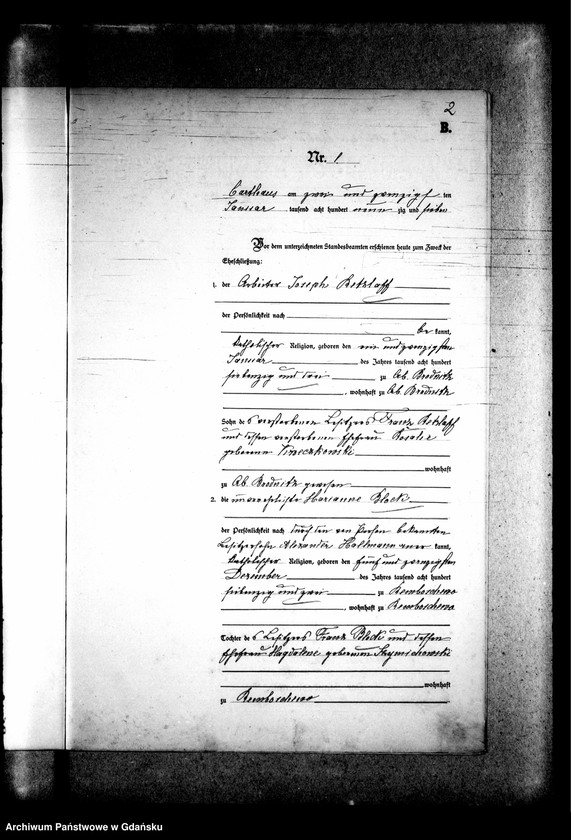 2
B.
Nr. 1
Carthaus am zwei und zwanzigsten
Januar tausend acht hundert neunzig und sieben
Vor dem unterzeichneten Standesbeamten erschienen heute zum Zweck der
Eheschließung:
1. der Arbeiter Joseph Retzlaff
der Persönlichkeit nach
be kannt,
katholischer Religion, geboren den ein und zwanzigsten
Januar des Jahres tausend acht hundert
siebenzig und drei zu Ab. Brodnitz
, wohnhaft zu Ab. Brodnitz
Sohn des verstorbenen Besitzers Franz Retzlaff
und dessen verstorbenen Ehefrau Rosalie
geborene
wohnhaft
zu Ab. Brodnitz gewesen
2. die unverehelichte Marianne Block
der Persönlichkeit nach durch den von Person bekannten
Besitzersohn Alexander Hallmann aner kannt,
katholischer Religion, geboren den fünf und zwanzigsten
Dezember des Jahres tausend acht hundert
siebenzig und zwei zu Remboschewo
, wohnhaft zu Remboschewo
Tochter des Besitzers Franz Block und dessen
Ehefrau Magdalene geborenen
wohnhaft
zu Remboschewo
Archiwum Państwowe w Gdańsku